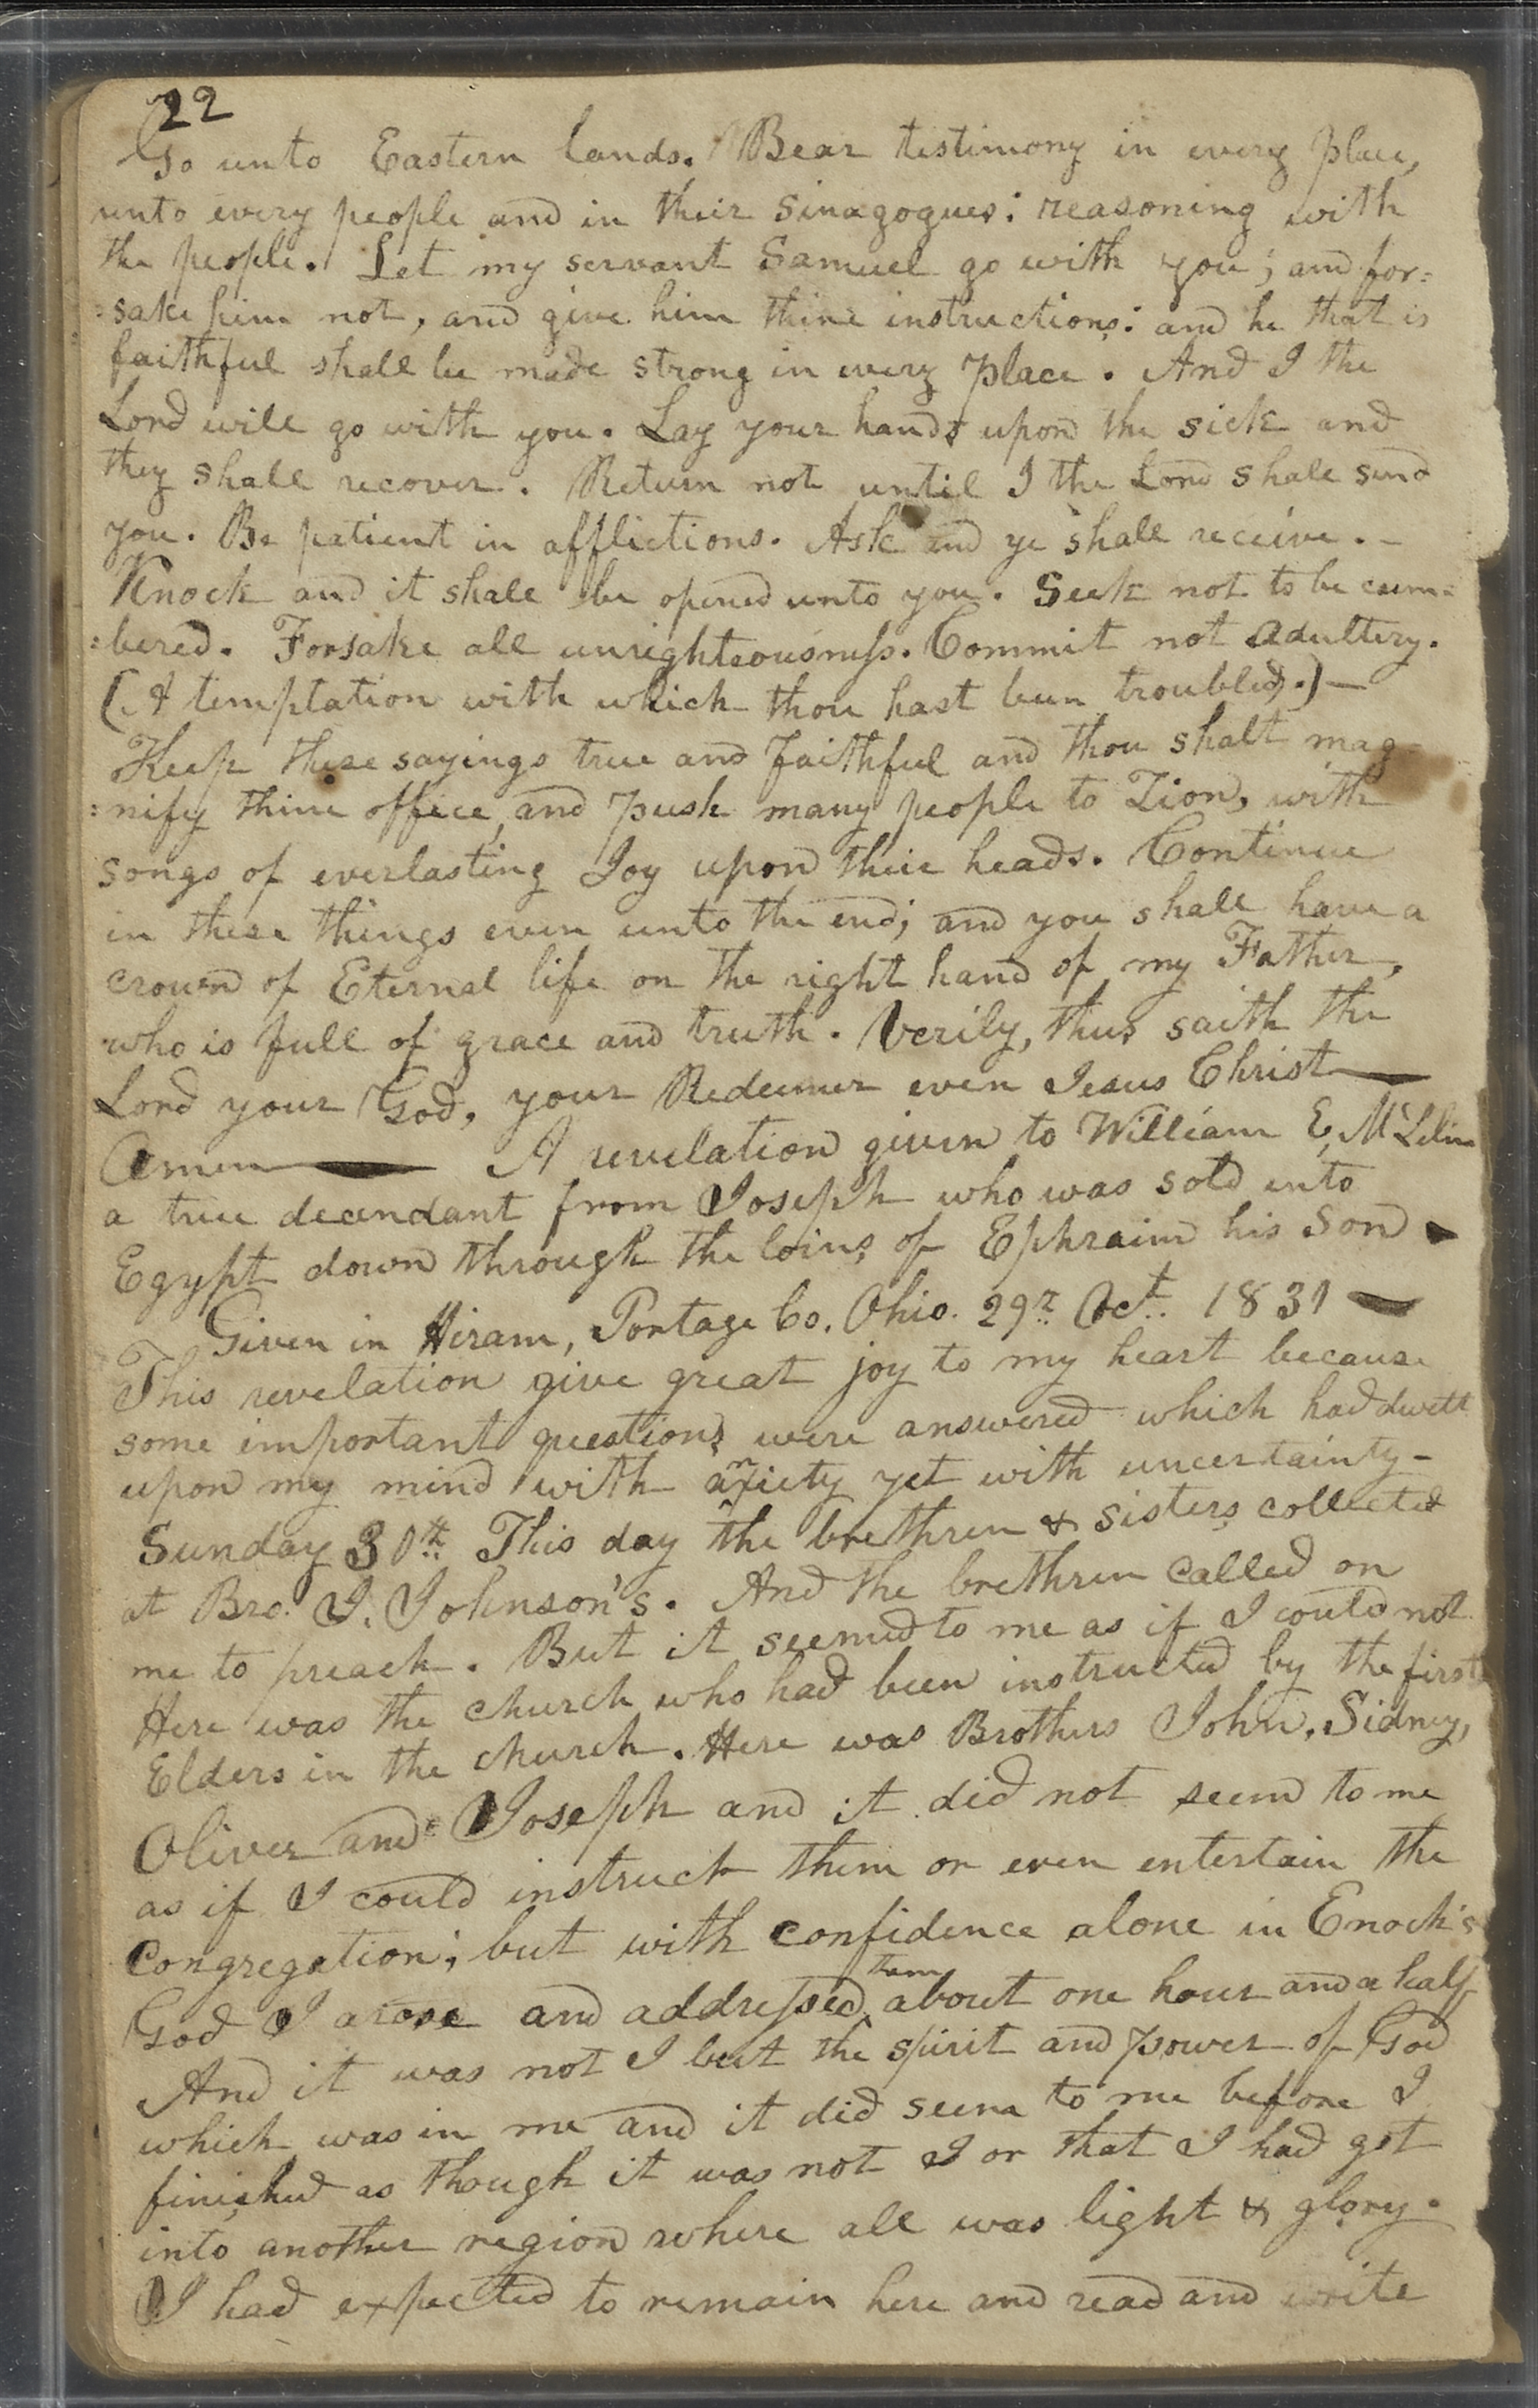 22
Go unto Eastern lands. Bear testimony in every place,
unto every people and in their Sinagogues: reasoning with
the people. Let my servant Samuel go with you; and for=
=sake him not, and give him thine instructions: and he that is
faithful shall be made strong in every place. And I the
Lord will go with you. Lay your hands upon the sick and
they shall recover. Return not until I the Lord shall send
you. Be patient in afflictions. Ask and ye shall receive. -
Knock and it shall be opened unto you. Seek not to be cum=
=bered. Forsake all unrighteousness. Commit not adultery.
(A temptation with which thou hast been troubled.) —
Keep these sayings true and faithful and thou shalt mag-
=nify thine office, and push many people to Zion, with
songs of everlasting Joy upon their heads. Continue
in these things even unto the end; and you shall have a
crown of Eternal life on the right hand of my Father,
who is full of grace and truth. Verily, thus saith the
Lord your God, your Redeemer even Jesus Christ —
Amen — A revelation given to William E, McLelin
a true decendant from Joseph who was sold into
Egypt down through the loins of Ephraim his Son -
Given in Hiram, Portage Co. Ohio. 29th Oct. 1831 —
This revelation give great joy to my heart because
some important questions were answered which had dwelt
upon my mind with anxiety yet with uncertainty -
Sunday 30th This day the brethren & sisters collected
at Bro. J. Johnson's. And the brethren called on
me to preach. But it seemed to me as if I could not
Here was the church who had been instructed by the first
Elders in the church. Here was Brothers John, Sidney,
Oliver and Joseph and it did not seem to me
as if I could instruct them or even entertain the
Congregation; but with confidence alone in Enoch's
God I arose and addressed them about one hour and a half
And it was not I but the spirit and power of God
which was in me and it did seem to me before I
finished as though it was not I or that I had got
into another region where all was light & glory.
I had expected to remain here and read and write